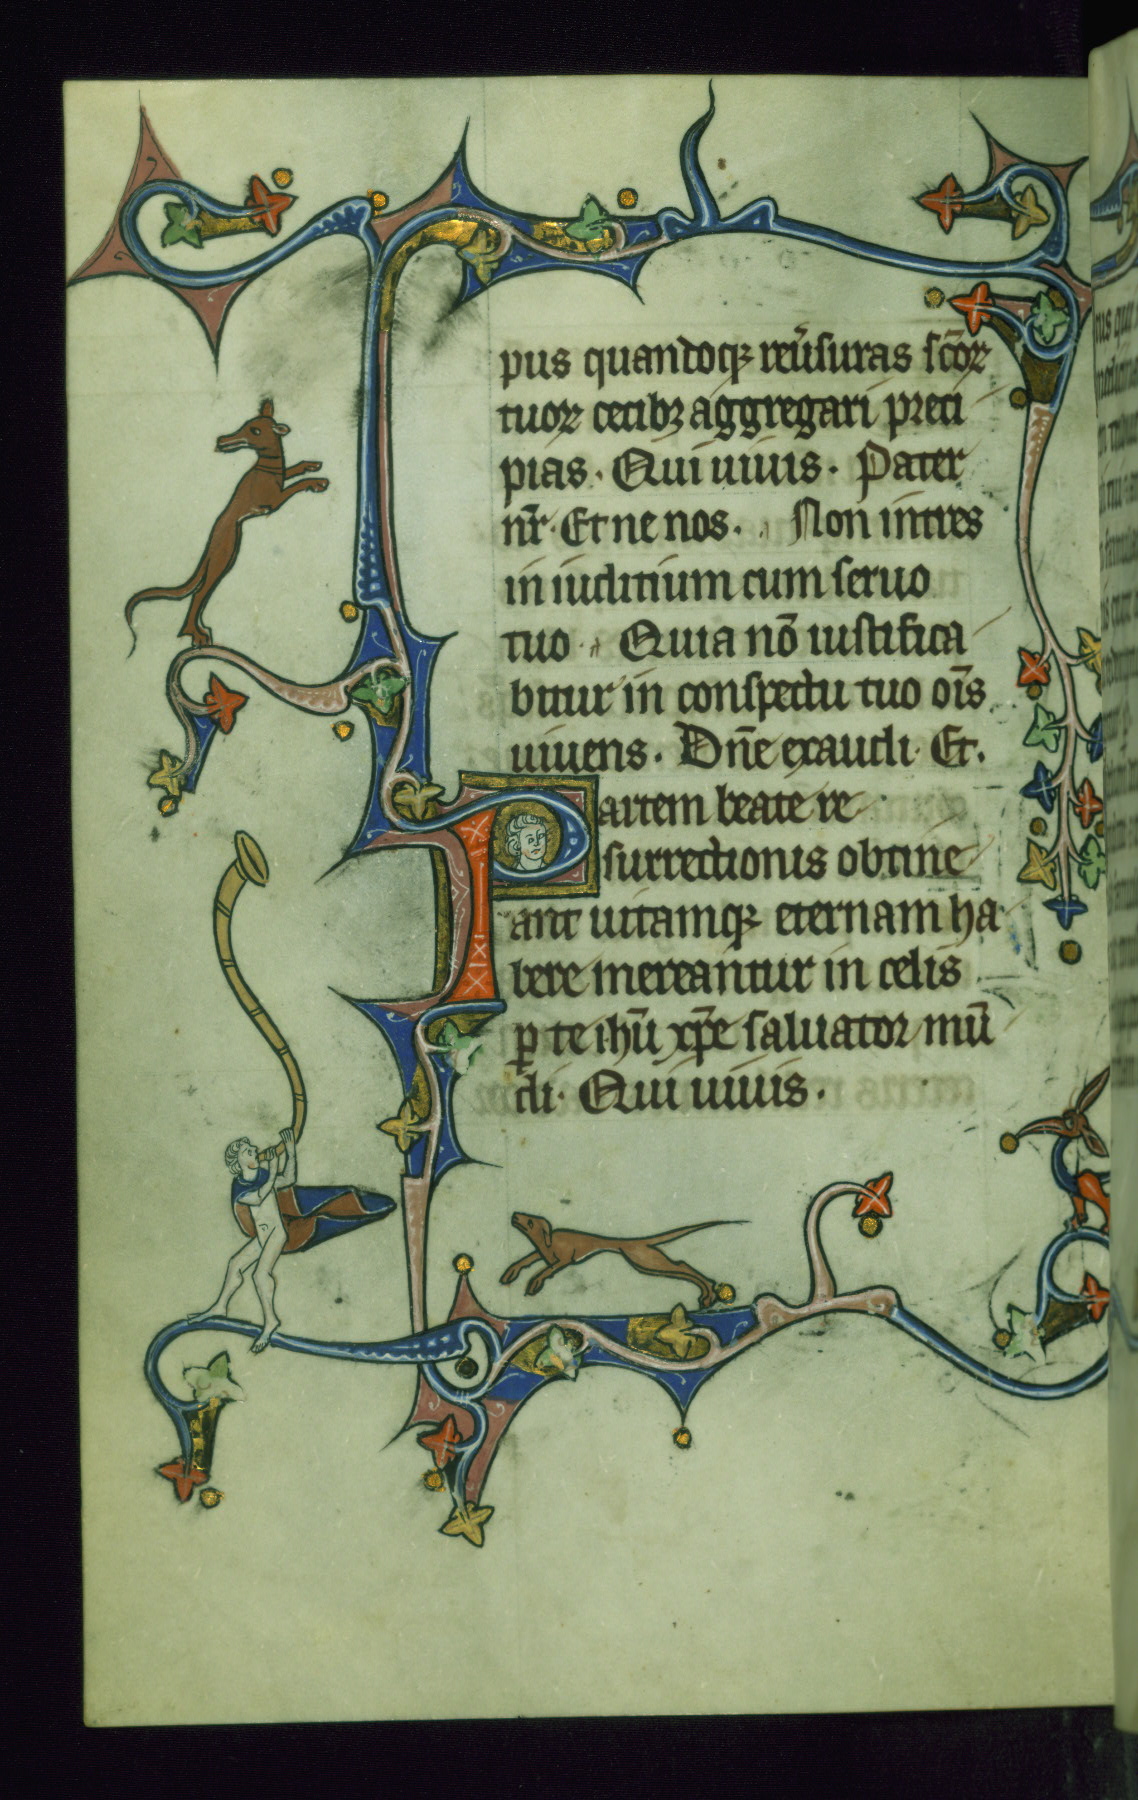 pus quandoqꝫ reũsuras sc̃oꝝ
tuoꝝ cetibꝫ aggregari preci
pias. Qui uiuis. Pater
nr̃. Et ne nos. Non intres
in iuditium cum seruo
tuo. Quia nõ iustifica
bitur in conspectu tuo oĩs
uiuens. Dñe exaudi. Et.
Partem beate re
surrectionis obtine
ant uitamqꝫ eternam ha
bere mereantur in celis
ꝑ te ihũ xp̃e saluator mũ
di. Qui uiuis.